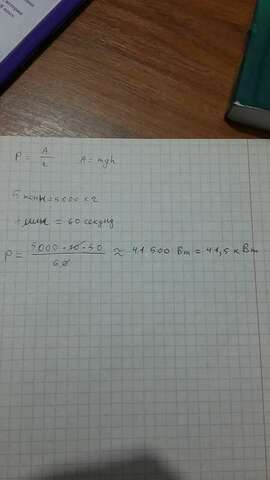 P = A/t   A = mgh
5 тонн = 5000 кг
1 мин = 60 секунд
P = 5000 · 10 · 50 / 60 ≈ 41 500 Вт = 41,5 кВт